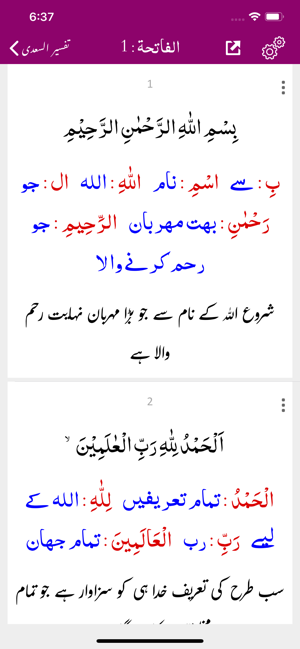 6:37
تفسیر السعدی
الفاتحة : 1
1
بِسْمِ اللّٰهِ الرَّحْمٰنِ الرَّحِيْمِ
بِ: سے اسْمِ: نام اللّٰهِ: الله ال: جو
رَحْمٰنِ: بهت مهربان الرَّحِيمِ: جو
رحم کرنے والا
شروع اللہ کے نام سے جو بڑا مہربان نہایت رحم
والا ہے
2
اَلْحَمْدُ لِلّٰهِ رَبِّ الْعٰلَمِيْنَ ۙ
الْحَمْدُ: تمام تعریفیں لِلّٰهِ: الله کے
لیے رَبِّ: رب الْعَالَمِينَ: تمام جهان
سب طرح کی تعریف خدا ہی کو سزاوار ہے جو تمام